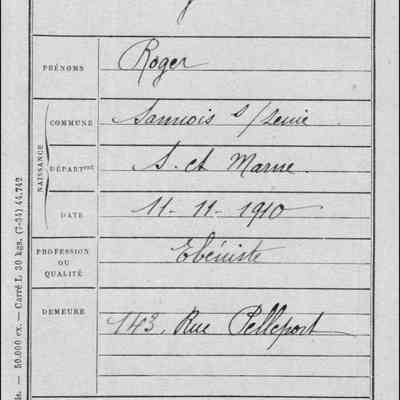 PRÉNOMS Roger
NAISSANCE
COMMUNE Samois s/Seine
DÉPARTᵐᵉⁿᵗ S. et Marne
DATE 11-11-1910
PROFESSION OU QUALITÉ Ebéniste
DEMEURE 143, Rue Pelleport
50.000 ex. — Carré L 30 kgs. (7-34) 44.742